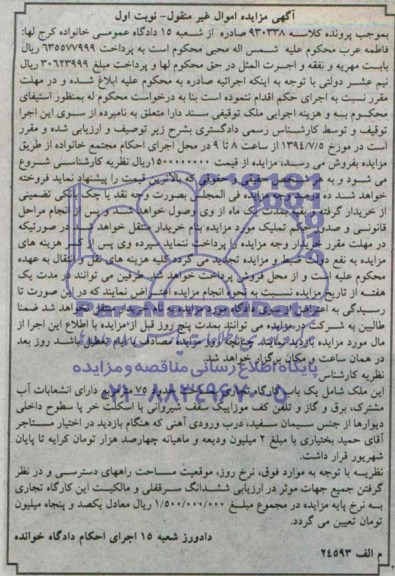 آگهی مزایده اموال غیر منقول- نوبت اول
بموجب پرونده کلاسه ۹۳۰۳۳۸ صادره از شعبه ۱۵ دادگاه عمومی خانواده کرج لها:
فاطمه عرب محکوم علیه شمس اله محبی محکوم است به پرداخت ۶۳۵۵۷۷۹۹۹ ریال
بابت مهریه و نفقه و اجرت المثل در حق محکوم لها و پرداخت مبلغ ۳۰۶۲۳۹۹۹ ریال
نیم عشر دولتی با توجه به اینکه اجرائیه صادره به محکوم علیه ابلاغ شده و در مهلت
مقرر نسبت به اجرای حکم اقدام ننموده است بنا به درخواست محکوم له بمنظور استیفای
محکوم به و هزینه اجرایی ملک توقیفی سند دارا متعلق به نامبرده از سوی این اجرا
توقیف و توسط کارشناس رسمی دادگستری بشرح زیر توصیف و ارزیابی شده و مقرر
است در مورخ ۱۳۹۴/۷/۵ از ساعت ۸ تا ۹ در محل اجرای احکام مجتمع خانواده از طریق
مزایده بفروش می رسد، مزایده از قیمت ۱۵۰۰۰۰۰۰۰۰ریال نظریه کارشناسی شروع
می شود و به هر شخص حقیقی و حقوقی که بالاترین قیمت را پیشنهاد نماید فروخته
خواهد شد ده درصد مزایده فی المجلس بصورت وجه نقد یا چک بانکی تضمینی
از خریدار گرفته و بقیه بمدت یک ماه از وی وصول خواهد شد و پس از انجام مراحل
قانونی و صدور حکم تملیک مورد مزایده بنام خریدار منتقل خواهد شد در صورتیکه
در مهلت مقرر خریدار وجه مزایده را پرداخت ننماید سپرده وی پس از کسر هزینه های
مزایده به نفع دولت ضبط و مزایده تجدید می گردد کلیه هزینه های نقل و انتقال به عهده
محکوم علیه است و از محل فروش پرداخت خواهد شد. طرفین می توانند در مدت یک
هفته از تاریخ مزایده نسبت به نحوه انجام مزایده اعتراض نمایند که در این صورت تا
رسیدگی به اعتراض از سوی دادگاه مورد مزایده به نام خریدار منتقل نخواهد شد ضمنا
طالبین به شرکت در مزایده می توانند بمدت پنج روز قبل از مزایده با اطلاع این اجرا از
مال مورد مزایده بازدید نمایند. چنانچه روز مزایده مصادف با ایام تعطیل باشد روز بعد
در همان ساعت و مکان برگزار خواهد شد.
نظریه کارشناس
این ملک شامل یک باب کارگاه تجاری به مساحت حدود ۷۵ متر مربع دارای انشعابات آب
مشترک، برق و گاز و تلفن کف موزاییک سقف شیروانی با اسکلت خر پا سطوح داخلی
دیوارها از جنس سیمان سفید، درب ورودی آهنی که هنگام بازدید در اختیار مستاجر
آقای حمید بختیاری با مبلغ ۲ میلیون ودیعه و ماهیانه چهارصد هزار تومان کرایه تا پایان
شهریور قرار داشت.
نظریه با توجه به موارد فوق، نرخ روز، موقعیت مساحت راههای دسترسی و در نظر
گرفتن جمیع جهات موثر در ارزیابی ششدانگ سرقفلی و مالکیت این کارگاه تجاری
به نرخ پایه مزایده در مجموع مبلغ ۱/۵۰۰/۰۰۰/۰۰۰ ریال معادل یکصد و پنجاه میلیون
تومان تعیین می گردد.
دادورز شعبه ۱۵ اجرای احکام دادگاه خوانده
م الف ۲۴۵۹۳
ParsNamadData
پایگاه اطلاع رسانی مناقصه و مزایده
۰۲۱-۸۸۳۴۹۶۷۰-۵